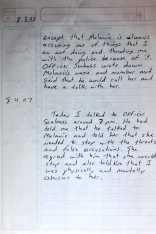 8.3.07
except that Melanie is always
accusing me of things that I
am not doing and thinking me
with the police because of it.
Officer Sumbass wrote down
Melanie's name and number and
said that he would call her and
have a talk with her.
8 4 07
Today I talked to Officer
Sumbass around 7 pm. He had
told me that he talked to
Melanie and told her that she
needed to stop with the threats
and false accusations. She
agreed with him that she would
stop and also told him that I
was physically and mentally
abusive to her.